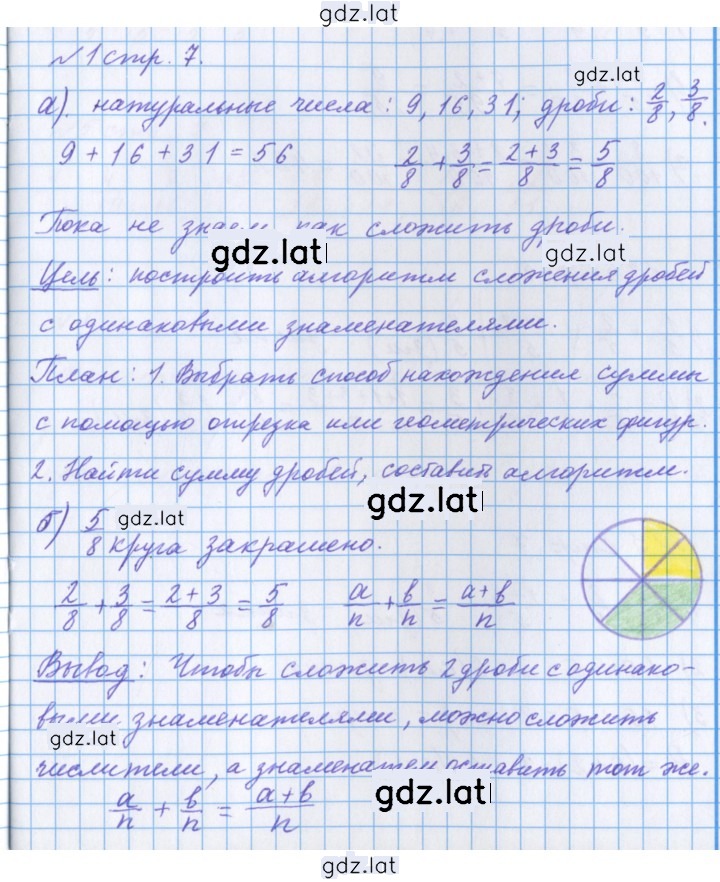 gdz.lat
№ 1 стр. 7.
gdz.lat
а). натуральные числа: 9, 16, 31; дроби: 2/8, 3/8.
9 + 16 + 31 = 56 2/8 + 3/8 = (2+3)/8 = 5/8
Пока не как сложить дроби.
gdz.lat
gdz.lat
Цель: построить алгоритм сложения дробей
с одинаковыми знаменателями.
План: 1. Выбрать способ нахождения суммы
с помощью отрезка или геометрических фигур.
2. Найти сумму дробей, составить алгоритм.
gdz.lat
б) 5/8 круга закрашено.
gdz.lat
2/8 + 3/8 = (2+3)/8 = 5/8 a/n + b/n = (a+b)/n
Вывод: Чтобы сложить 2 дроби с одинако-
выми знаменателями, можно сложить
gdz.lat
числители, а знаменатель оставить тот же.
a/n + b/n = (a+b)/n
gdz.lat
gdz.lat